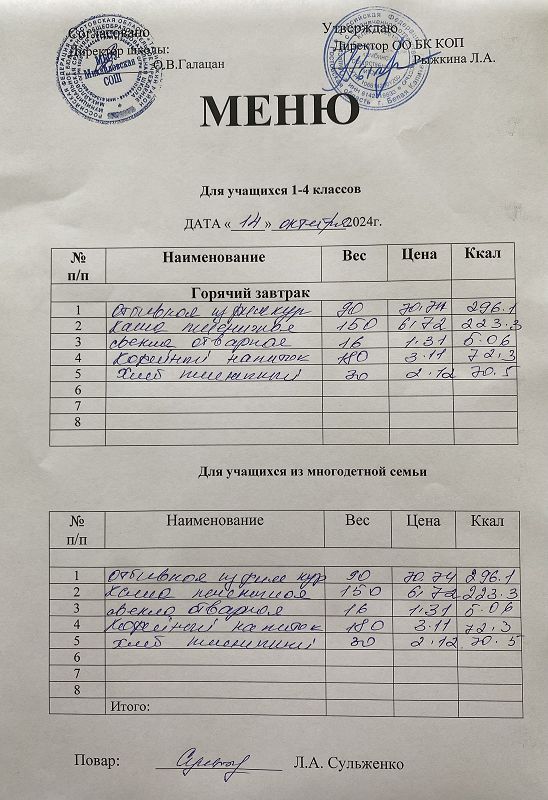 Согласовано Утверждаю
Директор школы: Директор ОО БК КОП
О.В.Галацан Рыжкина Л.А.
МЕНЮ
Для учащихся 1-4 классов
ДАТА « 14 » октября 2024г.
№ п/п Наименование Вес Цена Ккал
Горячий завтрак
1 Отбивная из филе кур 90 70.74 296.1
2 Каша пшеничная 150 6.72 223.3
3 свекла отварная 16 1.31 5.06
4 Кофейный напиток 180 3.11 72.3
5 Хлеб пшеничный 30 2.12 70.5
6
7
8
Для учащихся из многодетной семьи
№ п/п Наименование Вес Цена Ккал
1 Отбивная из филе кур 90 70.74 296.1
2 Каша пшеничная 150 6.72 223.3
3 свекла отварная 16 1.31 5.06
4 Кофейный напиток 180 3.11 72.3
5 хлеб пшеничный 30 2.12 70.5
6
7
8
Итого:
Повар: Л.А. Сульженко